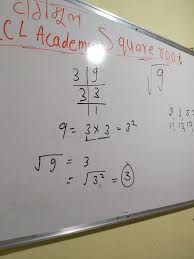 CL Academy Square root
3 | 9
3 | 3
1
√9
9 = 3 × 3 = 3²
√9 = 3
= √3² = 3